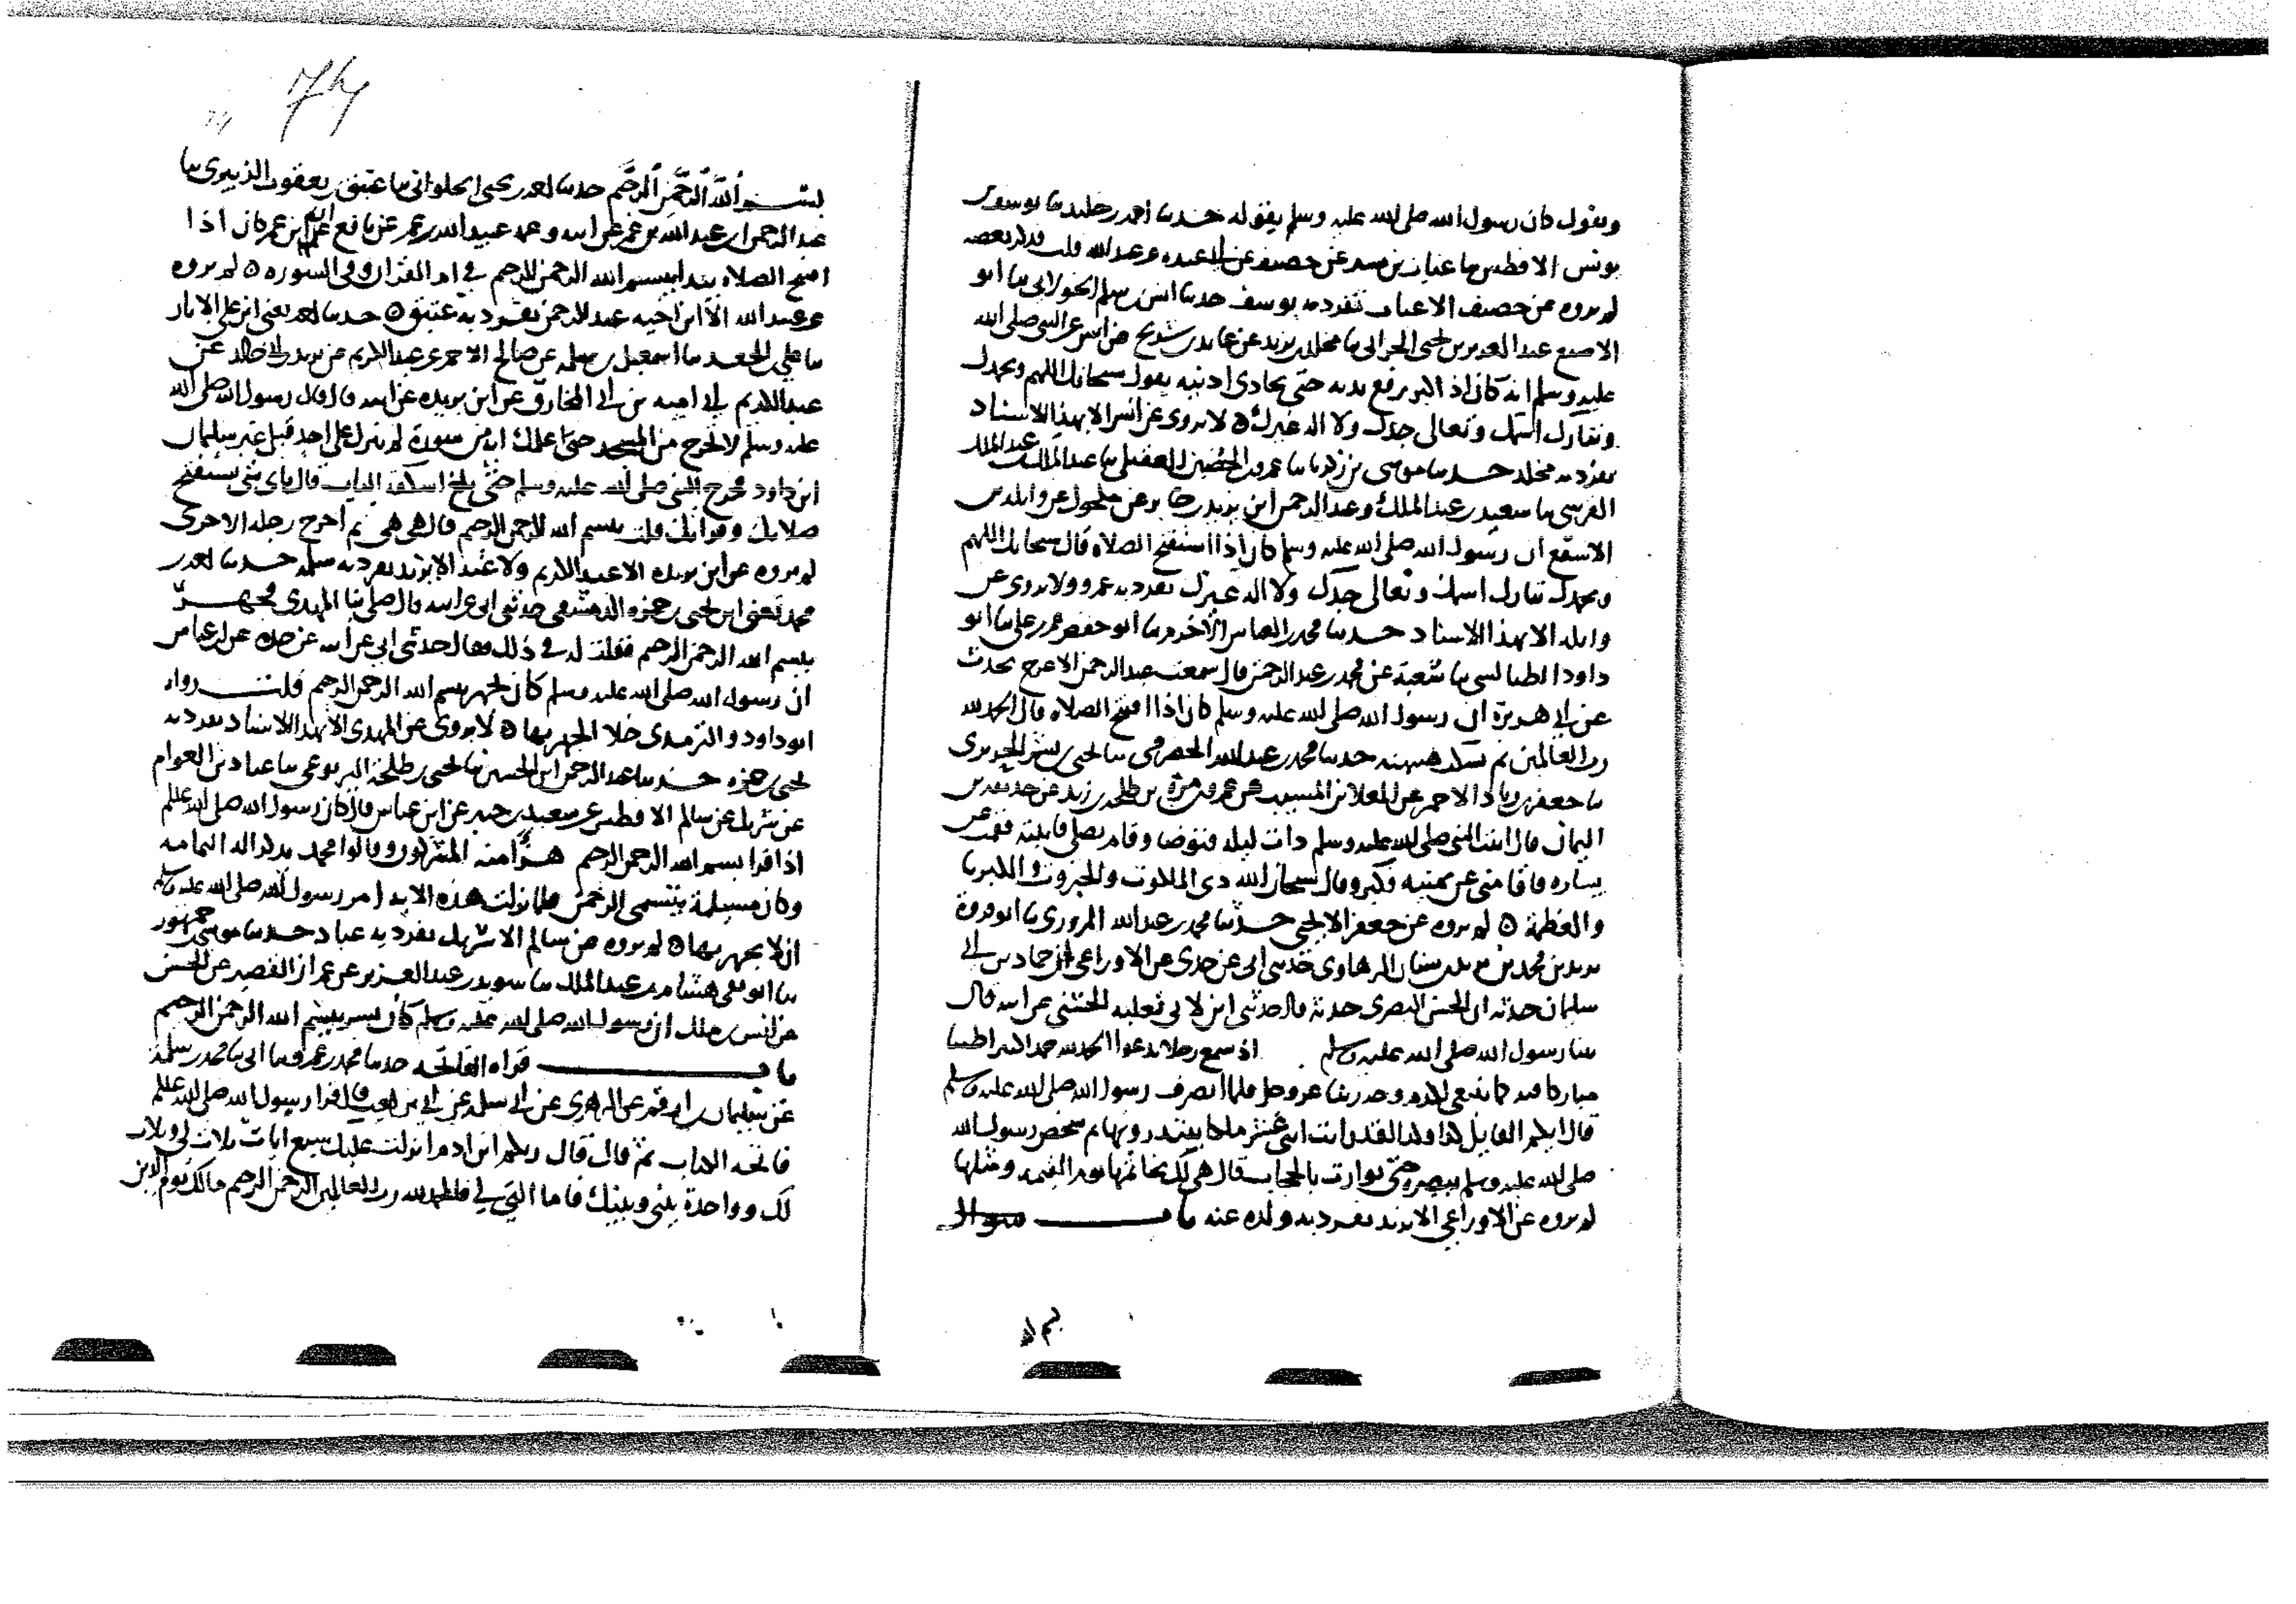 ويقول كان رسول الله صلى الله عليه وسلم يقوله حدثنا احمد بن خليد نا يوسف بن
يونس الافطس نا عتاب بن بشير عن خصيف عن ابي عبيدة عن عبد الله قلت فذكر بعضه
لم يروه عن خصيف الا عتاب تفرد به يوسف حدثنا انس بن سلم الخولاني نا ابو
الاصبغ عبد العزيز بن يحيى الحراني نا مخلد بن يزيد عن عايذ بن شريح عن انس عن النبي صلى الله
عليه وسلم انه كان اذا كبر رفع يديه حتى يحاذي اذنيه يقول سبحانك اللهم وبحمدك
وتبارك اسمك وتعالى جدك ولا اله غيرك لا يروى عن انس الا بهذا الاسناد
تفرد به مخلد حدثنا موسى بن زكريا نا عمرو بن الحصين العقيلي نا عبد الملك بن عبد الملك
القرشي نا سعيد بن عبد الملك وعبد الرحمن ابن يزيد بن جابر عن مكحول عن واثلة بن
الاسقع ان رسول الله صلى الله عليه وسلم كان اذا استفتح الصلاة قال سبحانك اللهم
وبحمدك تبارك اسمك وتعالى جدك ولا اله غيرك تفرد به عمرو ولا يروى عن
واثلة الا بهذا الاسناد حدثنا محمد بن العباس الاخرم نا ابو حفص عمرو بن علي نا ابو
داود الطيالسي نا شعبة عن محمد بن عبد الرحمن قال سمعت عبد الرحمن الاعرج يحدث
عن ابي هريرة ان رسول الله صلى الله عليه وسلم كان اذا افتتح الصلاة قال الحمد لله
رب العالمين ثم سكت هنيهة حدثنا محمد بن عبد الله الحضرمي نا يحيى بن بشر الحريري
نا جعفر بن زياد الاحمر عن العلاء بن المسيب عن عمرو بن مرة عن طلحة بن يزيد عن حذيفة بن
اليمان قال اتيت النبي صلى الله عليه وسلم ذات ليلة فتوضا وقام يصلي فاتيته فقمت عن
يساره فاقامني عن يمينه فكبر وقال سبحان الله ذي الملكوت والجبروت والكبريا
والعظمة لم يروه عن جعفر الا يحيى حدثنا محمد بن عبد الله المروزي نا ابو فروة
يزيد بن محمد بن يزيد بن سنان الرهاوي حدثني ابي عن جدي عن الاوزاعي ان حماد بن ابي
سليمان حدثه ان الحسن البصري حدثه قال حدثني ابن لابي ثعلبة الخشني عن ابيه قال
بينا رسول الله صلى الله عليه وسلم اذ سمع رجلا يدعو الحمد لله حمدا كثيرا طيبا
مباركا فيه كما ينبغي لكرم وجه ربنا عز وجل فلما انصرف رسول الله صلى الله عليه وسلم
قال ايكم القايل كذا وكذا لقد رايت اثني عشر ملكا يبتدرونها ثم شخص رسول الله
صلى الله عليه وسلم ببصره حتى توارت بالحجاب قال هي لك بخاتمها يوم القيمة ومثلها
لم يروه عن الاوزاعي الا يزيد تفرد به ولده عنه باب
بسم الله
بسم الله الرحمن الرحيم حدثنا احمد بن يحيى الحلواني نا عتيق بن يعقوب الزبيري نا
عبد الرحمن ابن عبد الله بن عمر عن ابيه وعمه عبيد الله بن عمر عن نافع عن ابن عمر كان اذا
افتتح الصلاة يبدا ببسم الله الرحمن الرحيم في ام القران وفي السورة لم يروه
عن عبيد الله الا ابن اخيه عبد الرحمن تفرد به عتيق حدثنا احمد يعني ابن علي الابار
نا علي بن الجعد نا اسمعيل بن سلمة عن صالح الاحمر عن عبد الكريم عن يزيد ابي خالد عن
عبد الكريم ابي امية بن ابي المخارق عن ابن بريدة عن ابيه قال قال رسول الله صلى الله
عليه وسلم لا تخرج من المسجد حتى اعلمك اية من سورة لم تنزل على احد قبلي غير سليمان
ابن داود فخرج النبي صلى الله عليه وسلم حتى بلغ اسكفة الباب قال باي شي تستفتح
صلاتك وقراتك قلت ببسم الله الرحمن الرحيم قال هي هي ثم اخرج رجله الاخرى
لم يروه عن ابن بريدة الا عبد الكريم ولا عنه الا يزيد تفرد به سلمة حدثنا احمد بن
محمد يعني ابن يحيى بن حمزة الدمشقي حدثني ابي عن ابيه قال صلى بنا المهدي فجهر
ببسم الله الرحمن الرحيم فقلت له في ذلك فقال حدثني ابي عن ابيه عن جده عن ابن عباس
ان رسول الله صلى الله عليه وسلم كان يجهر ببسم الله الرحمن الرحيم قلت رواه
ابو داود والترمذي خلا الجهر بها لا يروى عن المهدي الا بهذا الاسناد تفرد به
يحيى بن حمزة حدثنا عبد الرحمن ابن الحسين نا يحيى بن طلحة اليربوعي نا عباد بن العوام
عن شريك عن سالم الافطس عن سعيد بن جبير عن ابن عباس قال كان رسول الله صلى الله عليه وسلم
اذا قرا بسم الله الرحمن الرحيم هزا منه المشركون وقالوا محمد يذكر اله اليمامة
وكان مسيلمة يتسمى الرحمن فلما نزلت هذه الاية امر رسول الله صلى الله عليه وسلم
ان لا يجهر بها لم يروه عن سالم الا شريك تفرد به عباد حدثنا موسى بن جمهور
نا ابو تقي هشام بن عبد الملك نا سويد بن عبد العزيز عن عمران القصير عن الحسن
عن انس بن ملك ان رسول الله صلى الله عليه وسلم كان يسر ببسم الله الرحمن الرحيم
باب قراة الفاتحة حدثنا محمد بن عمرو نا ابي نا محمد بن سلمة
عن سليمان بن ارقم عن الزهري عن ابي سلمة عن ابي بن كعب قال قرا رسول الله صلى الله عليه وسلم
فاتحة الكتاب ثم قال قال ربكم ابن ادم انزلت عليك سبع ايات ثلاث لي وثلاث
لك وواحدة بيني وبينك فاما التي لي فالحمد لله رب العالمين الرحمن الرحيم مالك يوم الدين